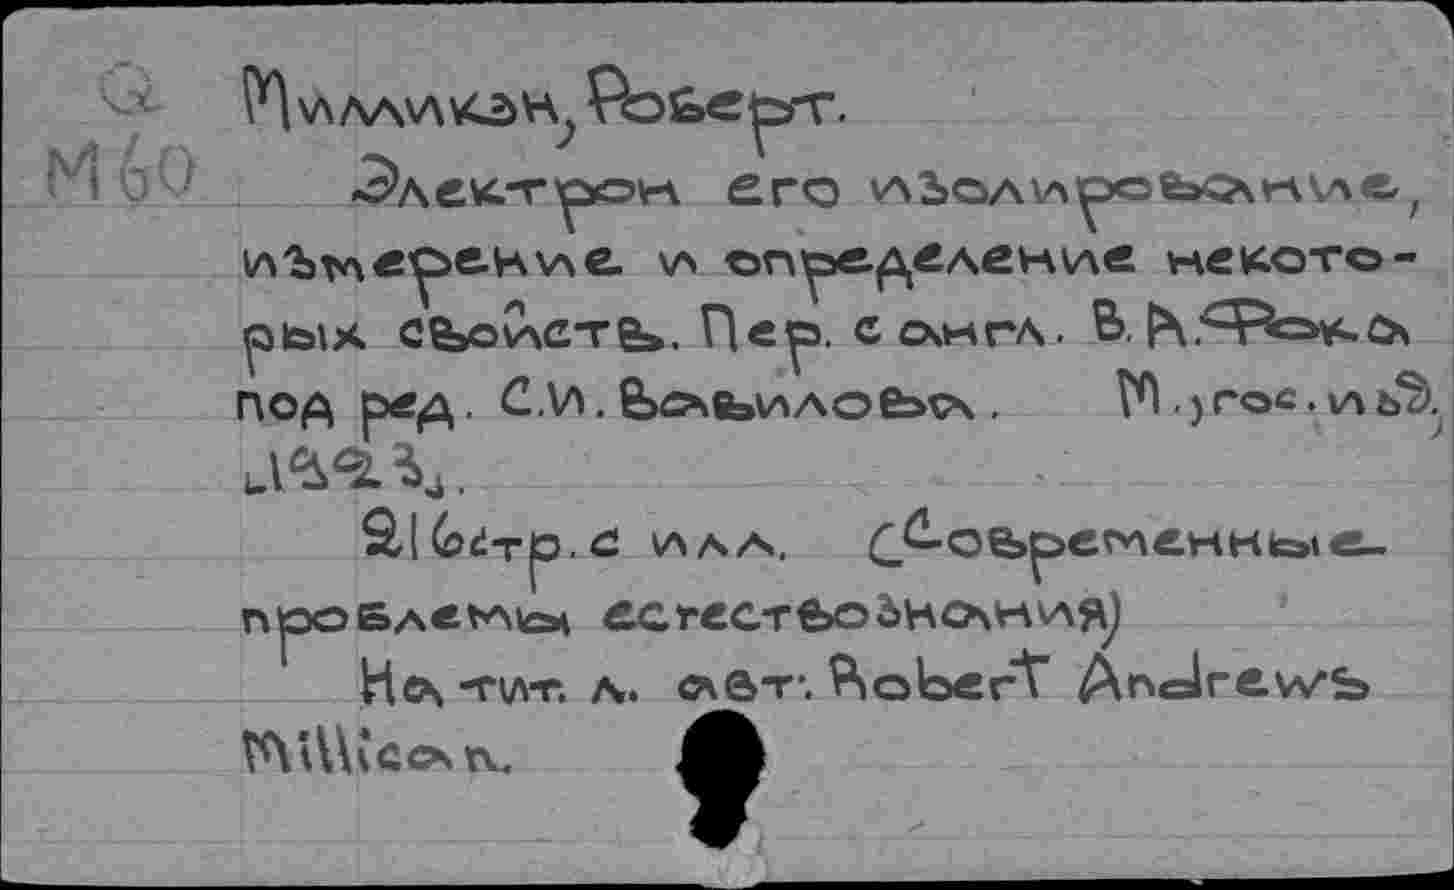 G Милликэн, Роберт.
М60 Электрон его изолирование,
измерение и определение некото-
рых свойств. Пер. с англ. В.А.Фока
под ред. С.И.Вавилова. М.,гос.изд.,
[192
216стр.с илл. (Современные
проблемы естествознания)
На тит. л. авт: Robert Andrews
Millican.